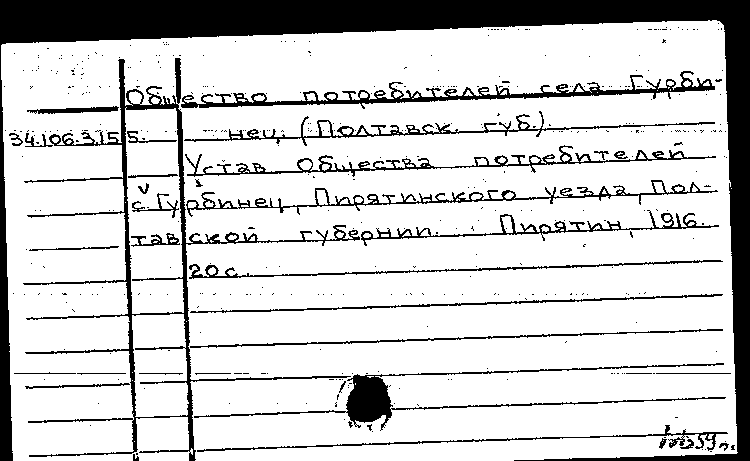 Общество потребителей села Гурби-
34.106.3.155. нец. (Полтавск. губ.).
Устав Общества потребителей
с. Гурбинец, Пирятинского уезда, Пол-
тавской губернии. Пирятин, 1916.
20 с.